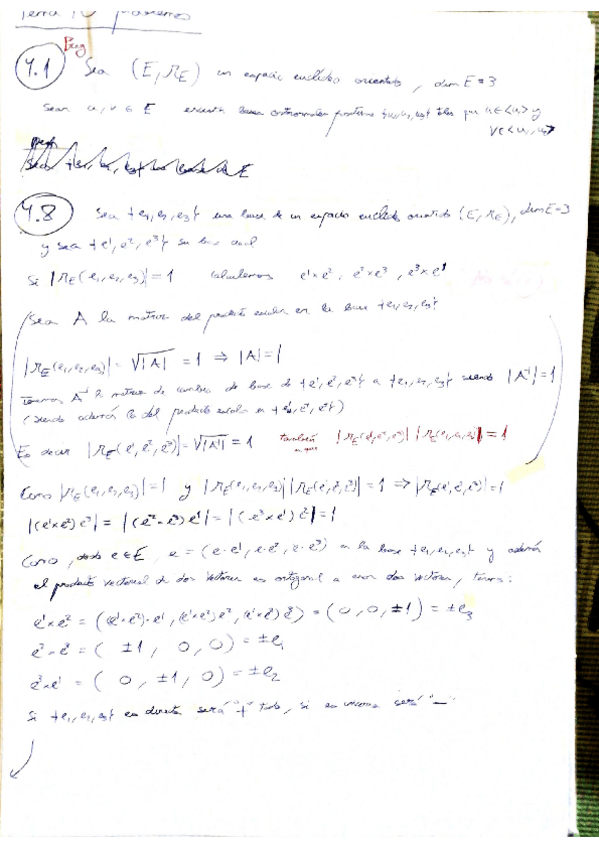 Tema 10 problemas
Preg
4.1 Sea (E, Ω_E) un espacio euclídeo orientado, dim E = 3
Sean u, v ∈ E encontrar bases ortonormales positivas {u₁, u₂, u₃} tales que u ∈ <u₁> y
v ∈ <u₁, u₂>
4.8 Sea {e₁, e₂, e₃} una base de un espacio euclídeo orientado (E, Ω_E), dim E = 3
y sea {e¹, e², e³} su base dual
Si |Ω_E(e₁, e₂, e₃)| = 1 calculemos e¹×e², e²×e³, e³×e¹
Sea A la matriz del producto escalar en la base {e₁, e₂, e₃}
|Ω_E(e₁, e₂, e₃)| = √|A| = 1 ⇒ |A| = 1
tomamos A⁻¹ matriz de cambio de base de {e¹, e², e³} a {e₁, e₂, e₃} siendo |A⁻¹| = 1
(siendo además la del producto escalar en {e¹, e², e³})
Es decir |Ω_E(e¹, e², e³)| = √|A⁻¹| = 1 también |Ω_E(e¹, e², e³)| |Ω_E(e₁, e₂, e₃)| = 1
Como |Ω_E(e₁, e₂, e₃)| = 1 y |Ω_E(e₁, e₂, e₃)| |Ω_E(e¹, e², e³)| = 1 ⇒ |Ω_E(e¹, e², e³)| = 1
|(e¹×e²) e³| = |(e²×e³) e¹| = |(e³×e¹) e²| = 1
Como, dado e ∈ E, e = (e·e¹, e·e², e·e³) en la base {e₁, e₂, e₃} y además
el producto vectorial de dos vectores es ortogonal a esos dos vectores, tenemos:
e¹×e² = ((e¹×e²)·e¹, (e¹×e²) e², (e¹×e²) e³) = (0, 0, ±1) = ±e₃
e²×e³ = (±1, 0, 0) = ±e₁
e³×e¹ = (0, ±1, 0) = ±e₂
Si {e₁, e₂, e₃} es directa será "+" todo, si es inversa será "-"